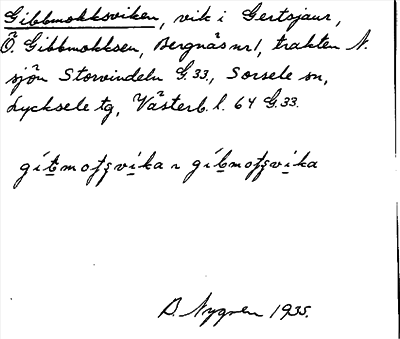 Gibbmokksviken, vik i Gertsjaur,
Ö. Gibbmokksen, Bergnäs nr 1, trakten N.
sjön Storvindeln G.33., Sorsele sn,
Lycksele tg, Västerb. l. 64 G.33.
gíbmofsvika ~ gíbmofsvika
D. Nygren 1935.